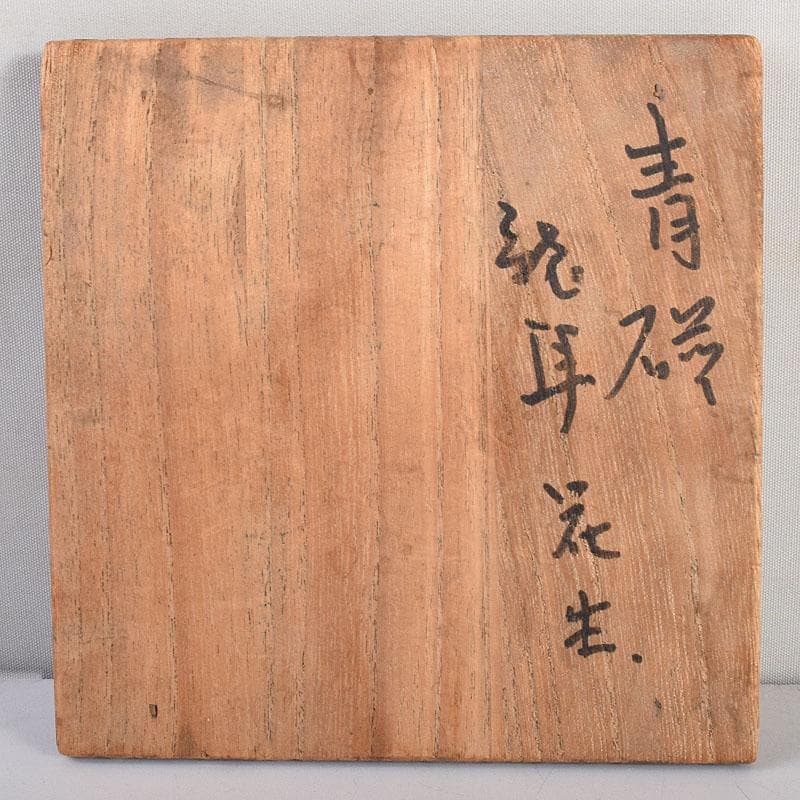 青磁
耳花生.